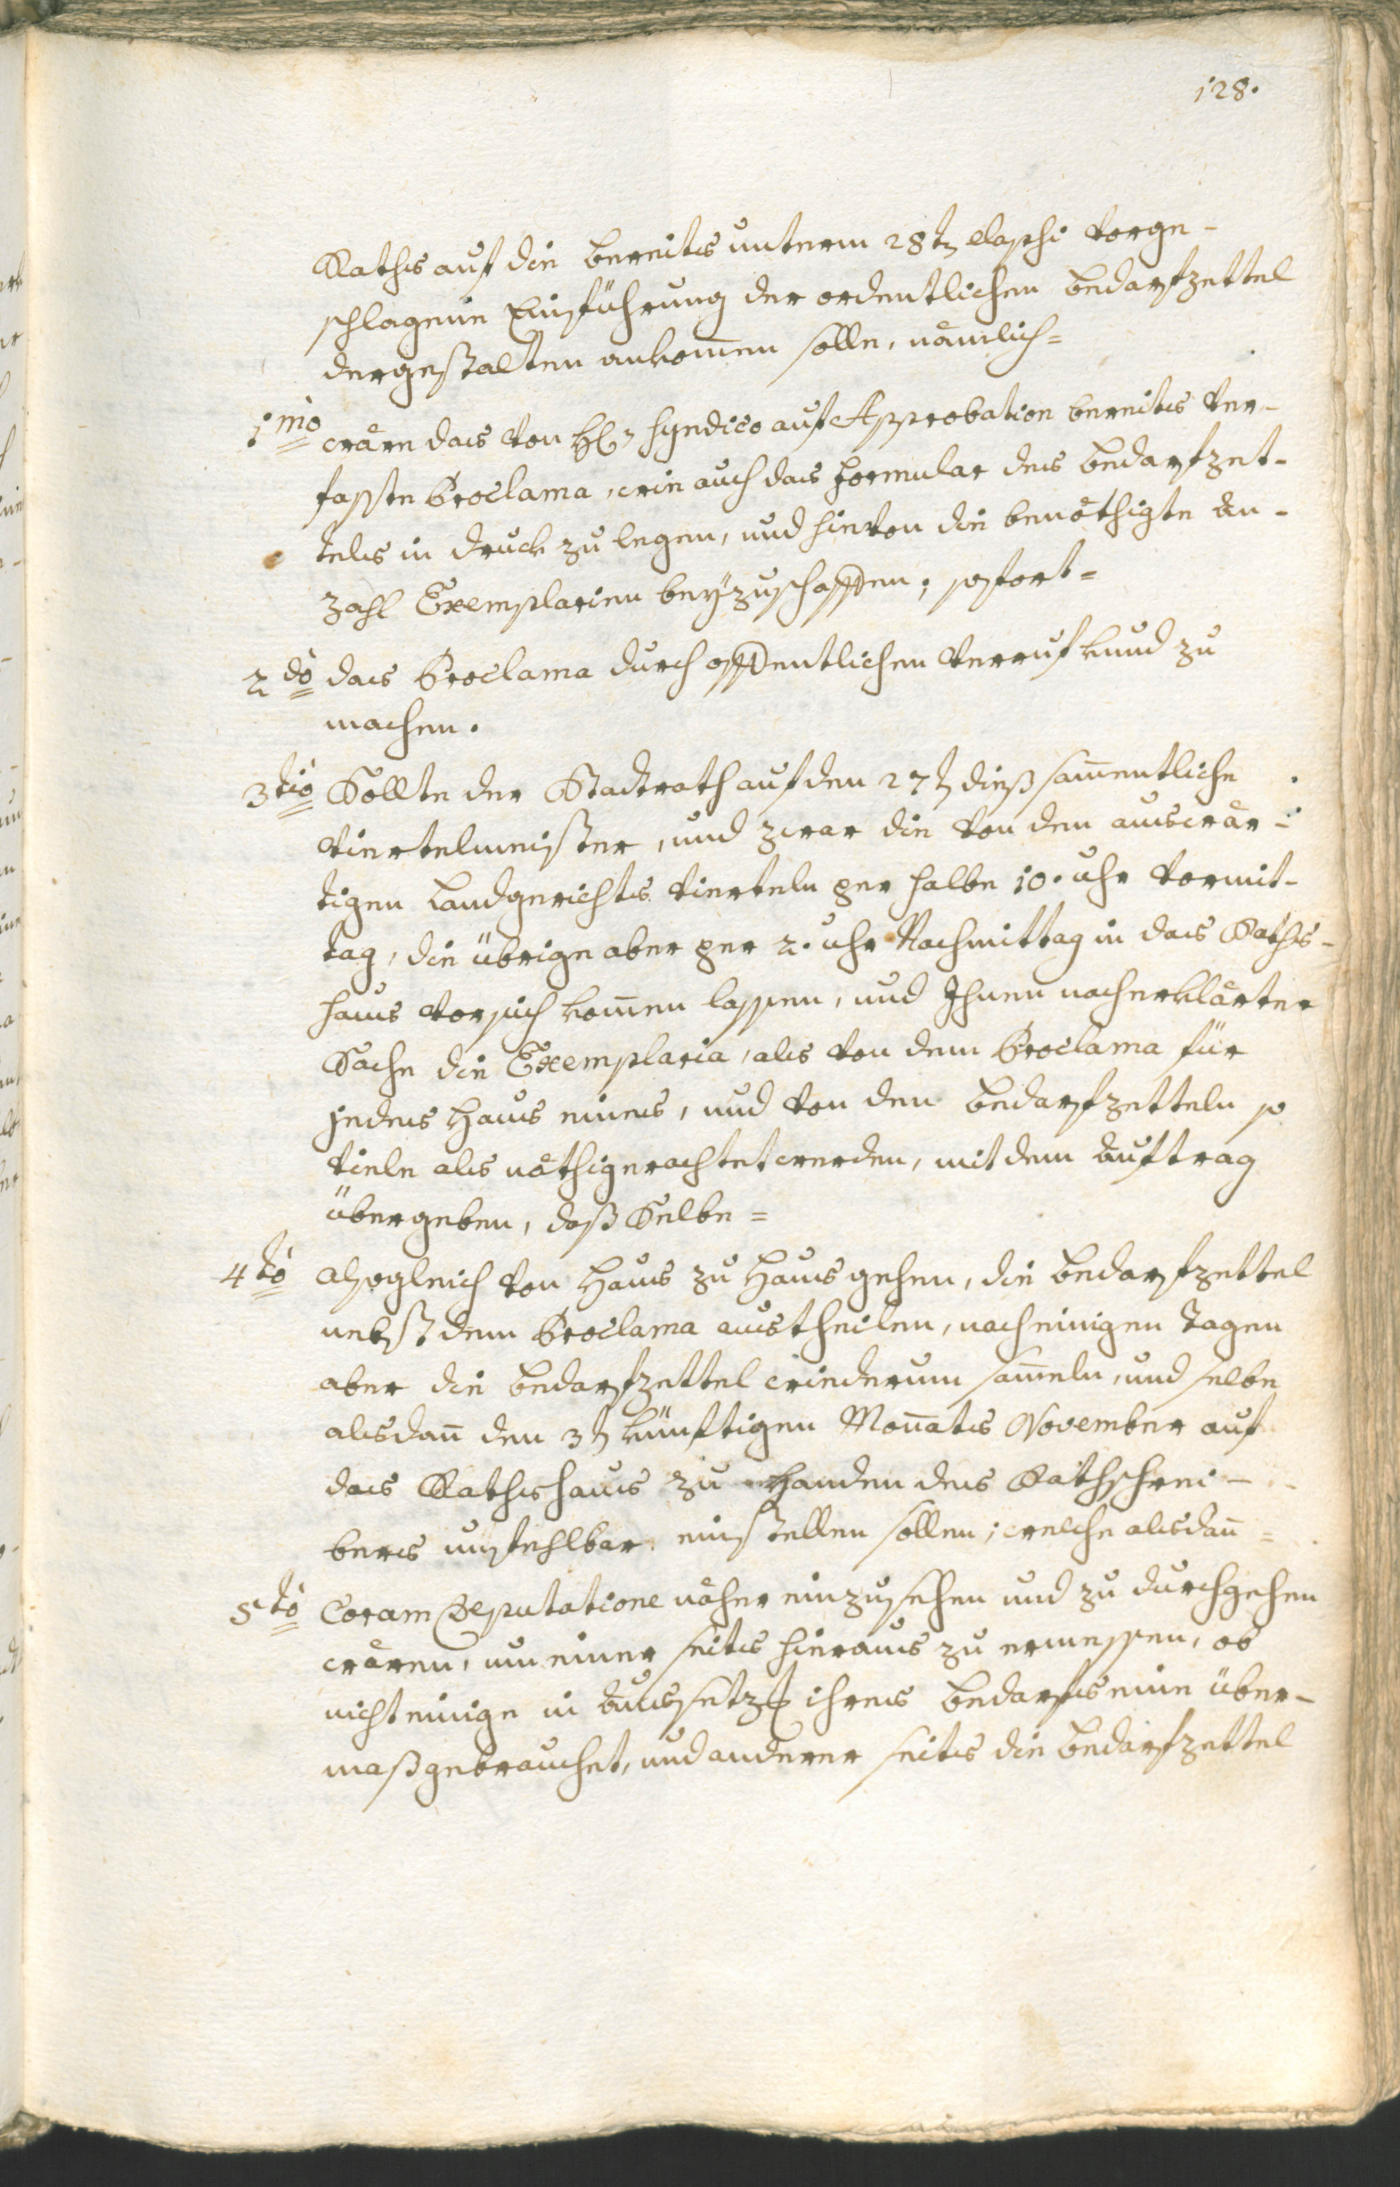 128.
Raths auf die bereits unterm 28tn elapsi vorge-
schlagene Einführung der ordentlichen Bedarfzettel
dergestalten ankom̄en solle, nämlich=
1mo wäre das von H: Syndico auf Approbation bereits ver-
fasste Proclama, wie auch das Formular des Bedarfzet-
tels in Druck zu legen, und hievon die benöthigte An-
zahl Exemplarien beÿzuschaffen; sofort=
2do das Proclama durch offentlichen Verruf kund zu
machen.
3tio Sollte der Stadtrath auf den 27tn dieß sam̄entliche
Viertelmeister, und zwar die von den auswär-
tigen Landgerichts Vierteln per halbe 10. Uhr Vormit-
tag, die übrige aber per 2. Uhr Nachmittag in das Raths-
haus vorsich kom̄en lassen, und Ihnen nach erklärter
Sache die Exemplaria, als von dem Proclama für
jedes Haus eines, und von den Bedarfzetteln so
viele als nöthig erachtet werden, mit dem Auftrag
übergeben, daß Selbe=
4to alsogleich von Haus zu Haus gehen, die Bedarfzettel
nebst dem Proclama austheilen, nach einigen Tagen
aber die Bedarfzettel wiederum sam̄eln, und selbe
alsdan̄ den 3tn künftigen Monats November auf
das Rathshaus zu Handen des Rathschrei-
bers unfehlbar einstellen sollen; welche alsdan̄=
5to Coram Deputatione näher einzusehen und zu durchgehen
wären, um einer seits hieraus zu ermessen, ob
nicht einige in Aussetzg ihres Bedarfs eine über-
maß gebrauchet, und anderer seits die Bedarfzettel